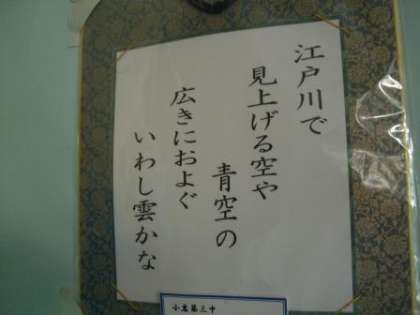 江戸川で
見上げる空や
青空の
広きにおよぐ
いわし雲かな
小岩第三中